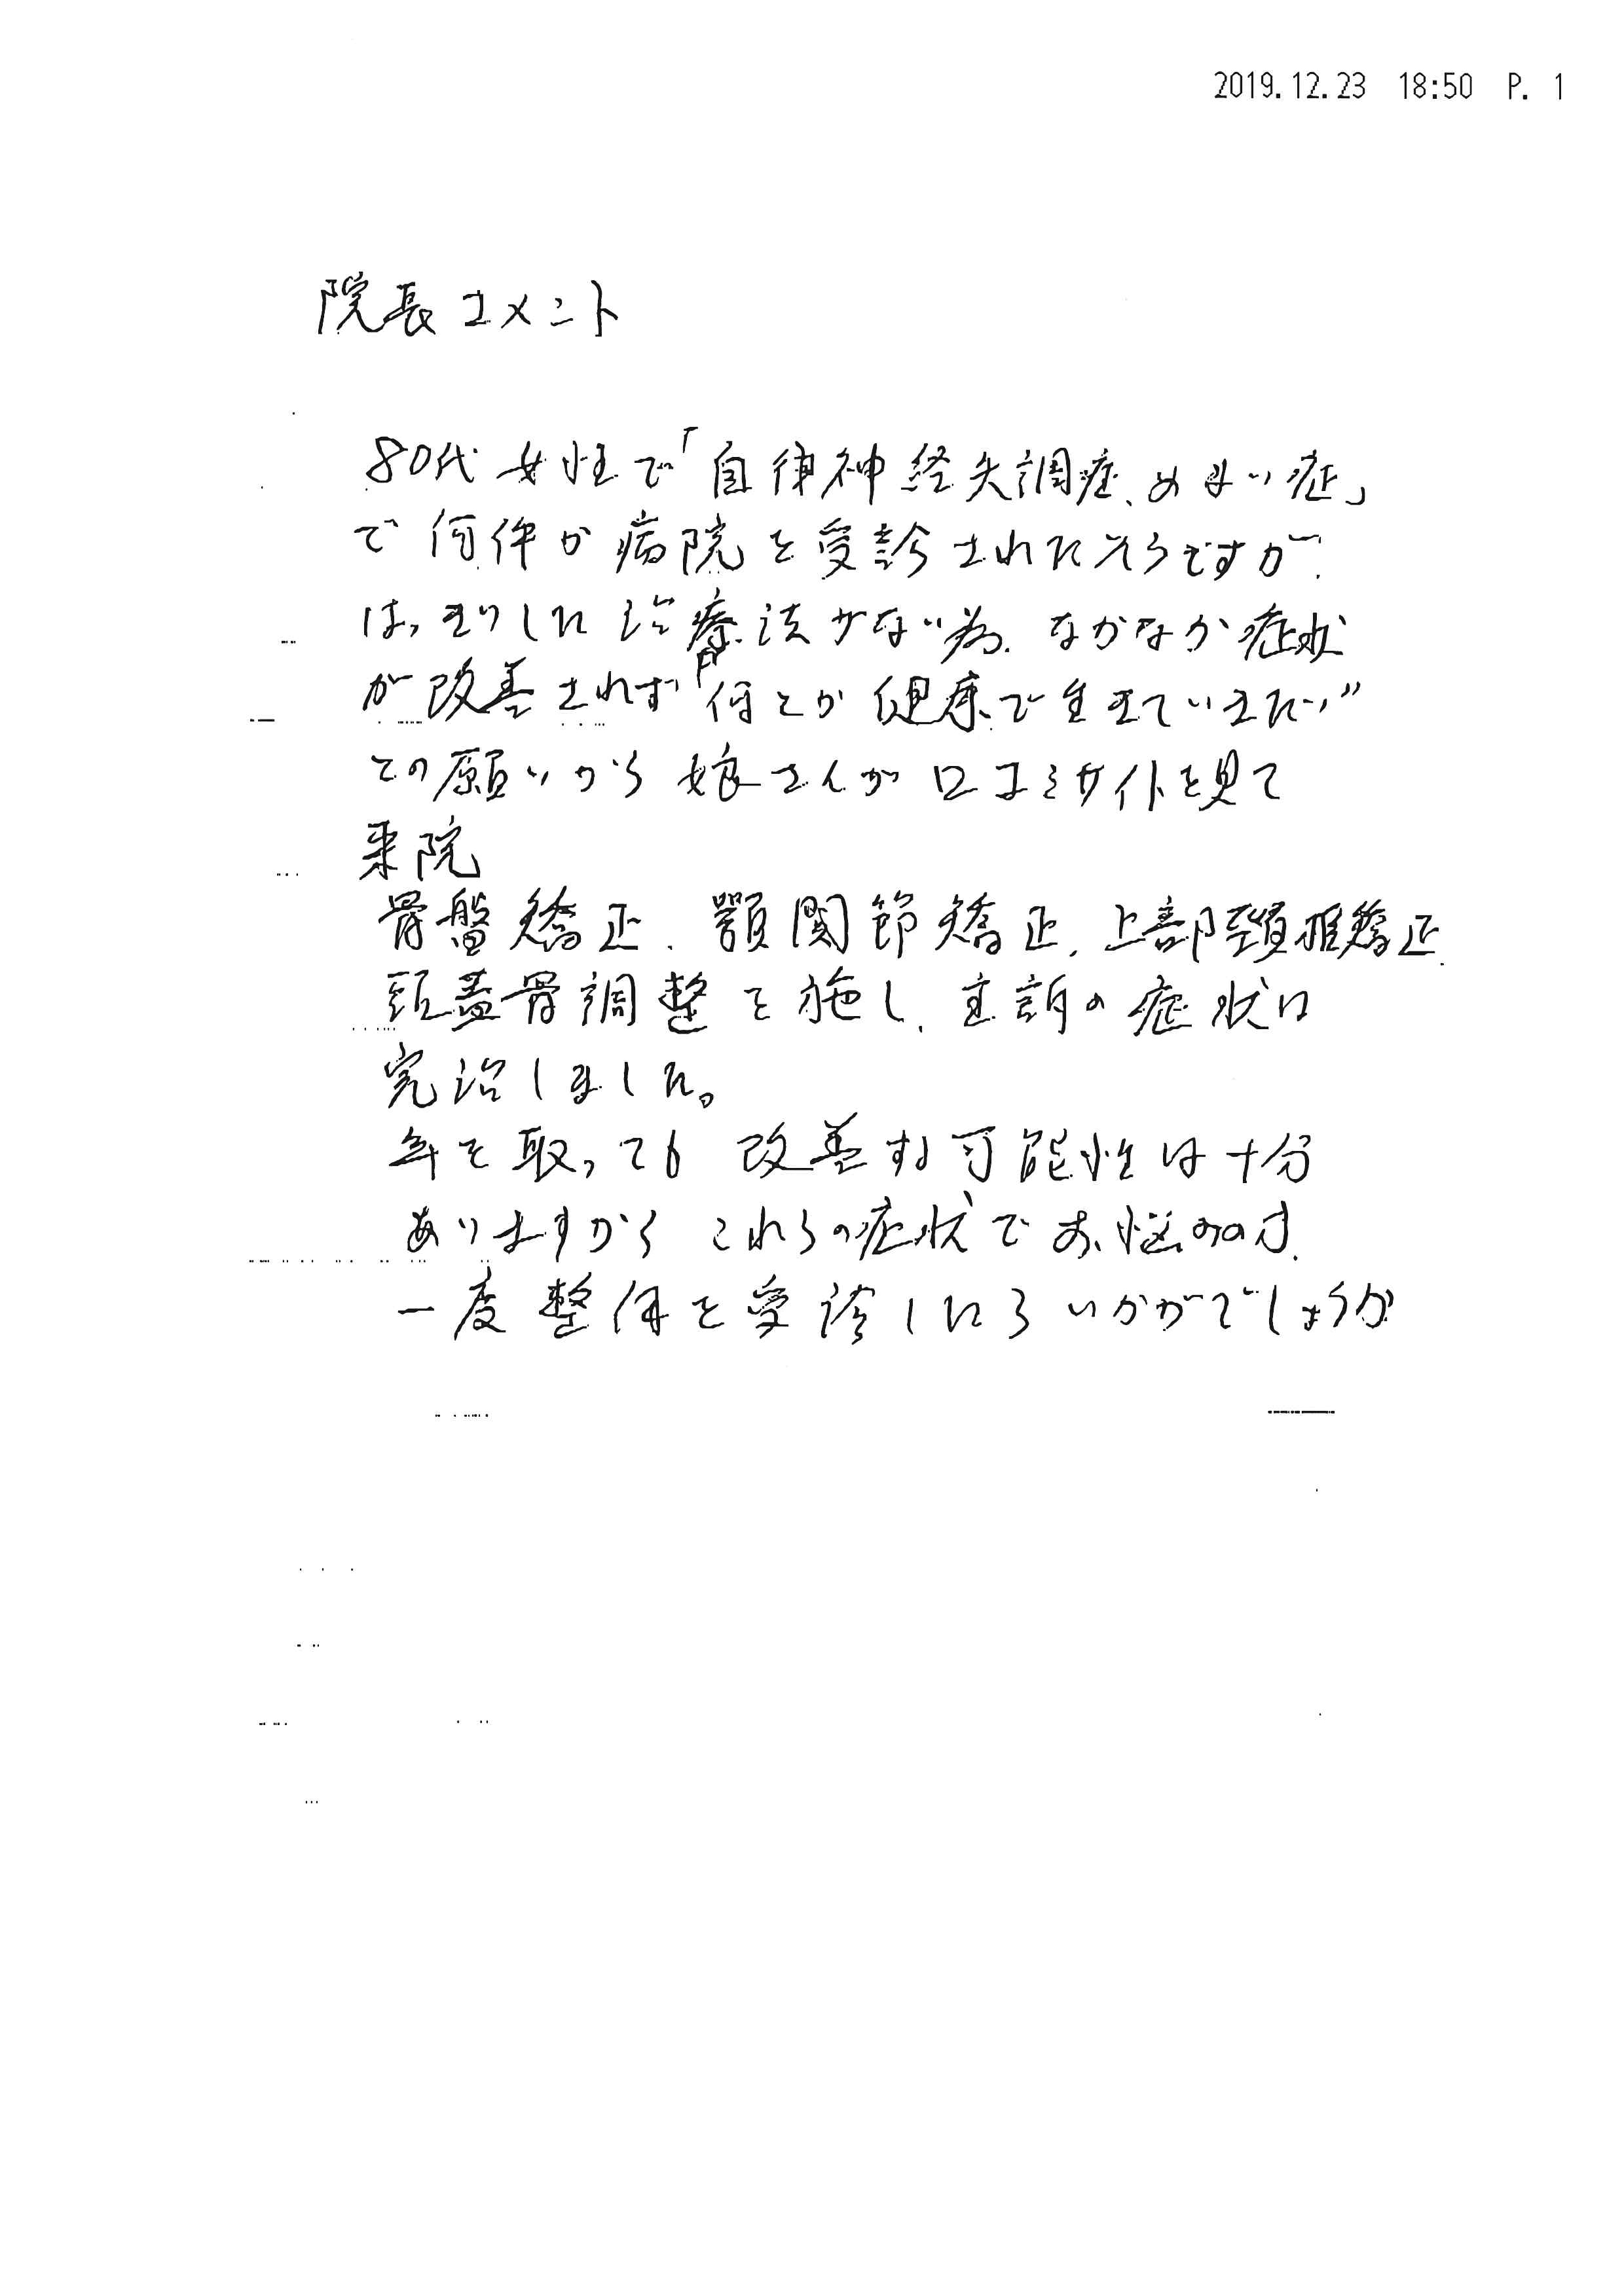 2019.12.23 18:50 P. 1
院長コメント
80代女性で「自律神経失調症、めまい症」
で何件か病院を受診されたそうですが、
はっきりした治療法がない為、なかなか症状
が改善されず"何とか健康で生きていきたい"
との願いから娘さんが口コミサイトを見て
来院
骨盤矯正、顎関節矯正、上部頚椎矯正、
頭蓋骨調整を施し、主訴の症状は
完治しました。
年を取っても改善する可能性は十分
ありますからこれらの症状でお悩みの方、
一度整体を受診したらいかがでしょうか